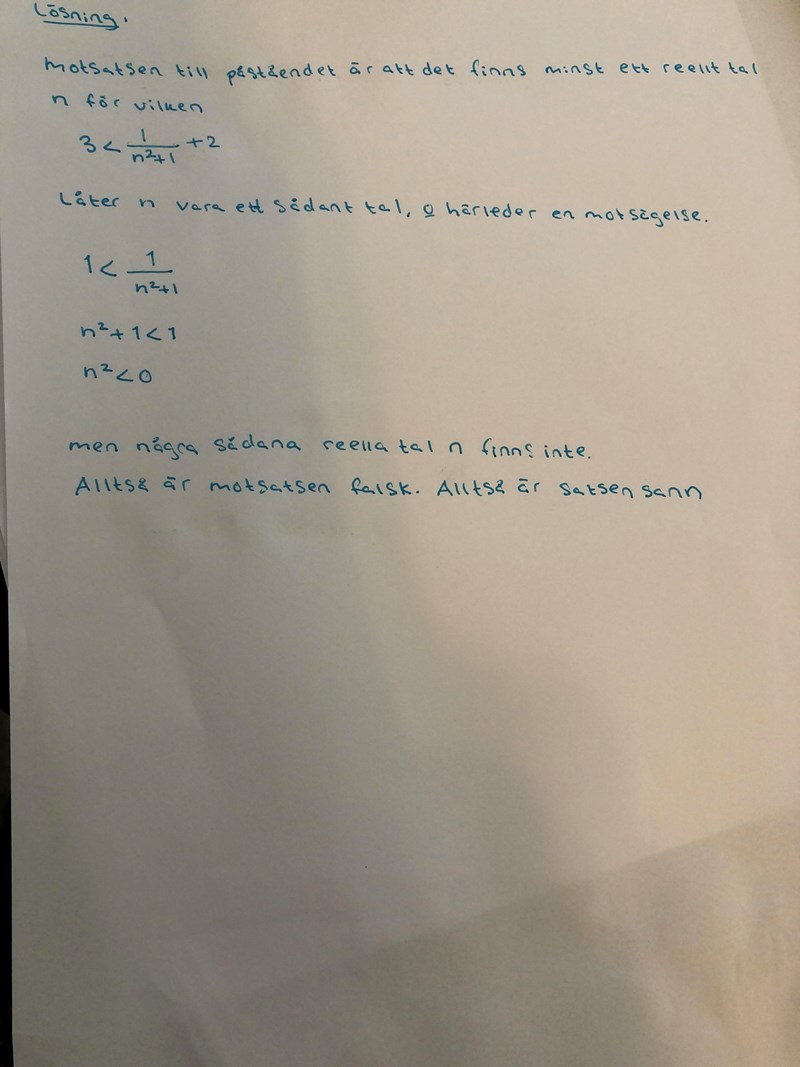 Lösning.
Motsatsen till påståendet är att det finns minst ett reellt tal
n för vilken
3 < 1/(n²+1) + 2
Låter n vara ett sådant tal, o härleder en motsägelse.
1 < 1/(n²+1)
n² + 1 < 1
n² < 0
men några sådana reella tal n finns inte.
Alltså är motsatsen falsk. Alltså är satsen sann